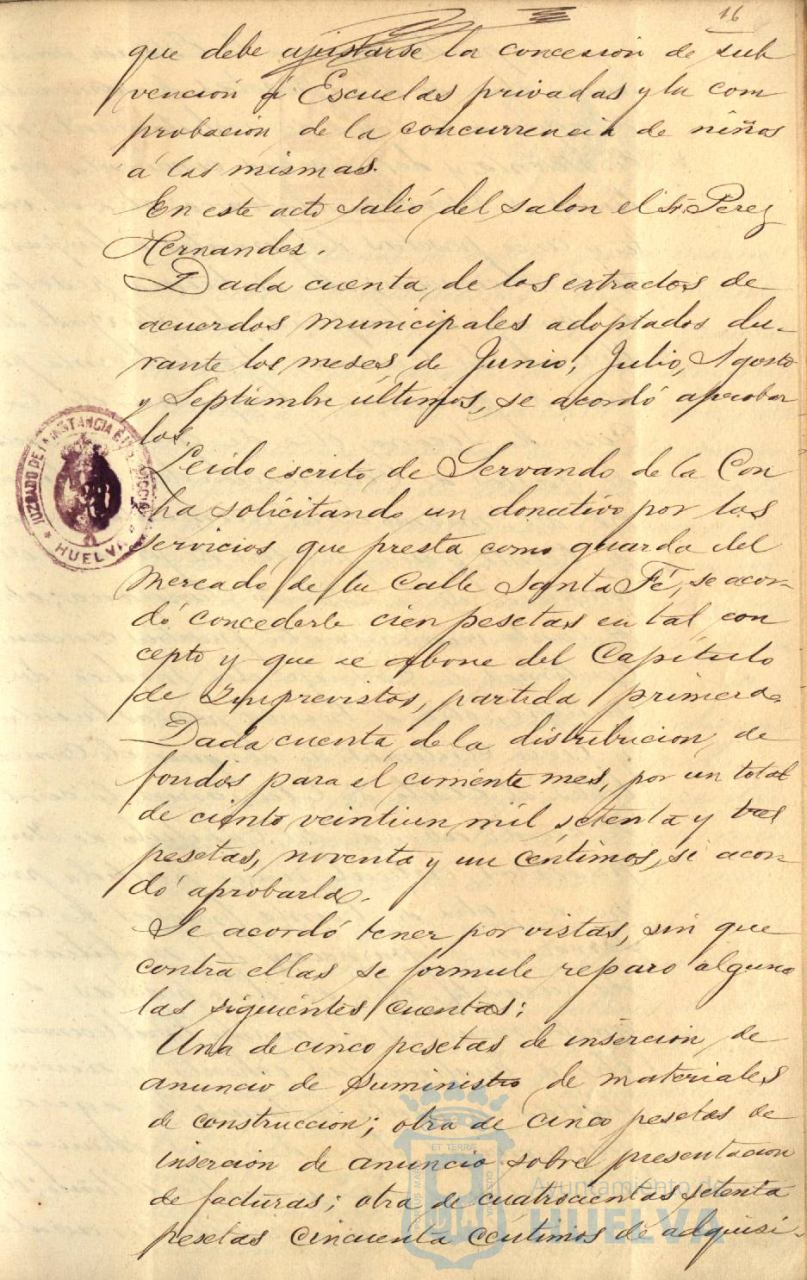 16
que debe ajustarse la concesión de sub
vención á Escuelas privadas y la com
probación de la concurrencia de niños
á las mismas.
En este acto salió del salon el Sr. Perez
Hernandez.
Dada cuenta de los extractos de
acuerdos municipales adoptados du-
rante los meses de Junio, Julio, Agosto
y Septiembre últimos, se acordó aprobar
los.
Leido escrito de Servando de la Con
cha solicitando un donativo por los
servicios que presta como guarda del
mercado de la Calle Santa Fé, se acor-
dó concederle cien pesetas en tal con
cepto y que se abone del Capítulo
de Imprevistos, partida primera.
Dada cuenta de la distribucion de
fondos para el corriente mes, por un total
de ciento veintiun mil setenta y tres
pesetas, noventa y un céntimos, se acor-
dó aprobarla.
Se acordó tener por vistas, sin que
contra ellas se formule reparo alguno
las siguientes cuentas:
Una de cinco pesetas de inserción de
anuncio de suministro de materiales
de construccion; otra de cinco pesetas de
inserción de anuncio sobre presentacion
de facturas; otra de cuatrocientas setenta
pesetas cincuenta céntimos de adquisi-
JUZGADO DE 1ª INSTANCIA É
HUELVA
ET TERRA
Ayuntamiento de
HUELVA